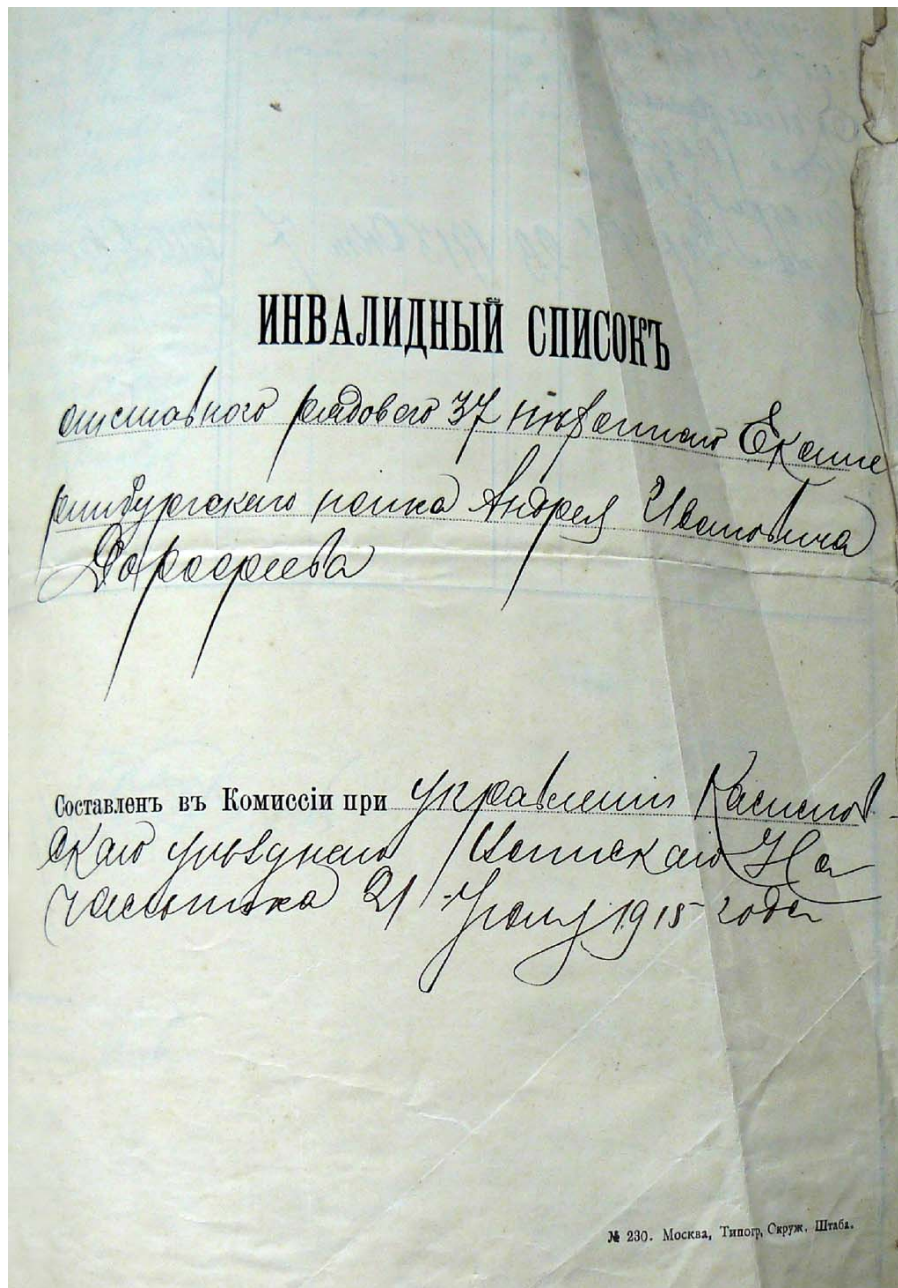 ИНВАЛИДНЫЙ СПИСОКЪ
отставного рядового 37 пѣхотнаго Екате
ринбургскаго полка Андрея Ивановича
Дорофеева
Составленъ въ Комиссіи при управленіи Касимов
скаго уѣзднаго Воинскаго На
чальника 21 1915 года
№ 230. Москва, Типогр, Скруж. Штаба.